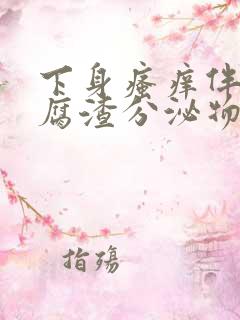 下身瘙痒伴
腐渣分泌物
指殇